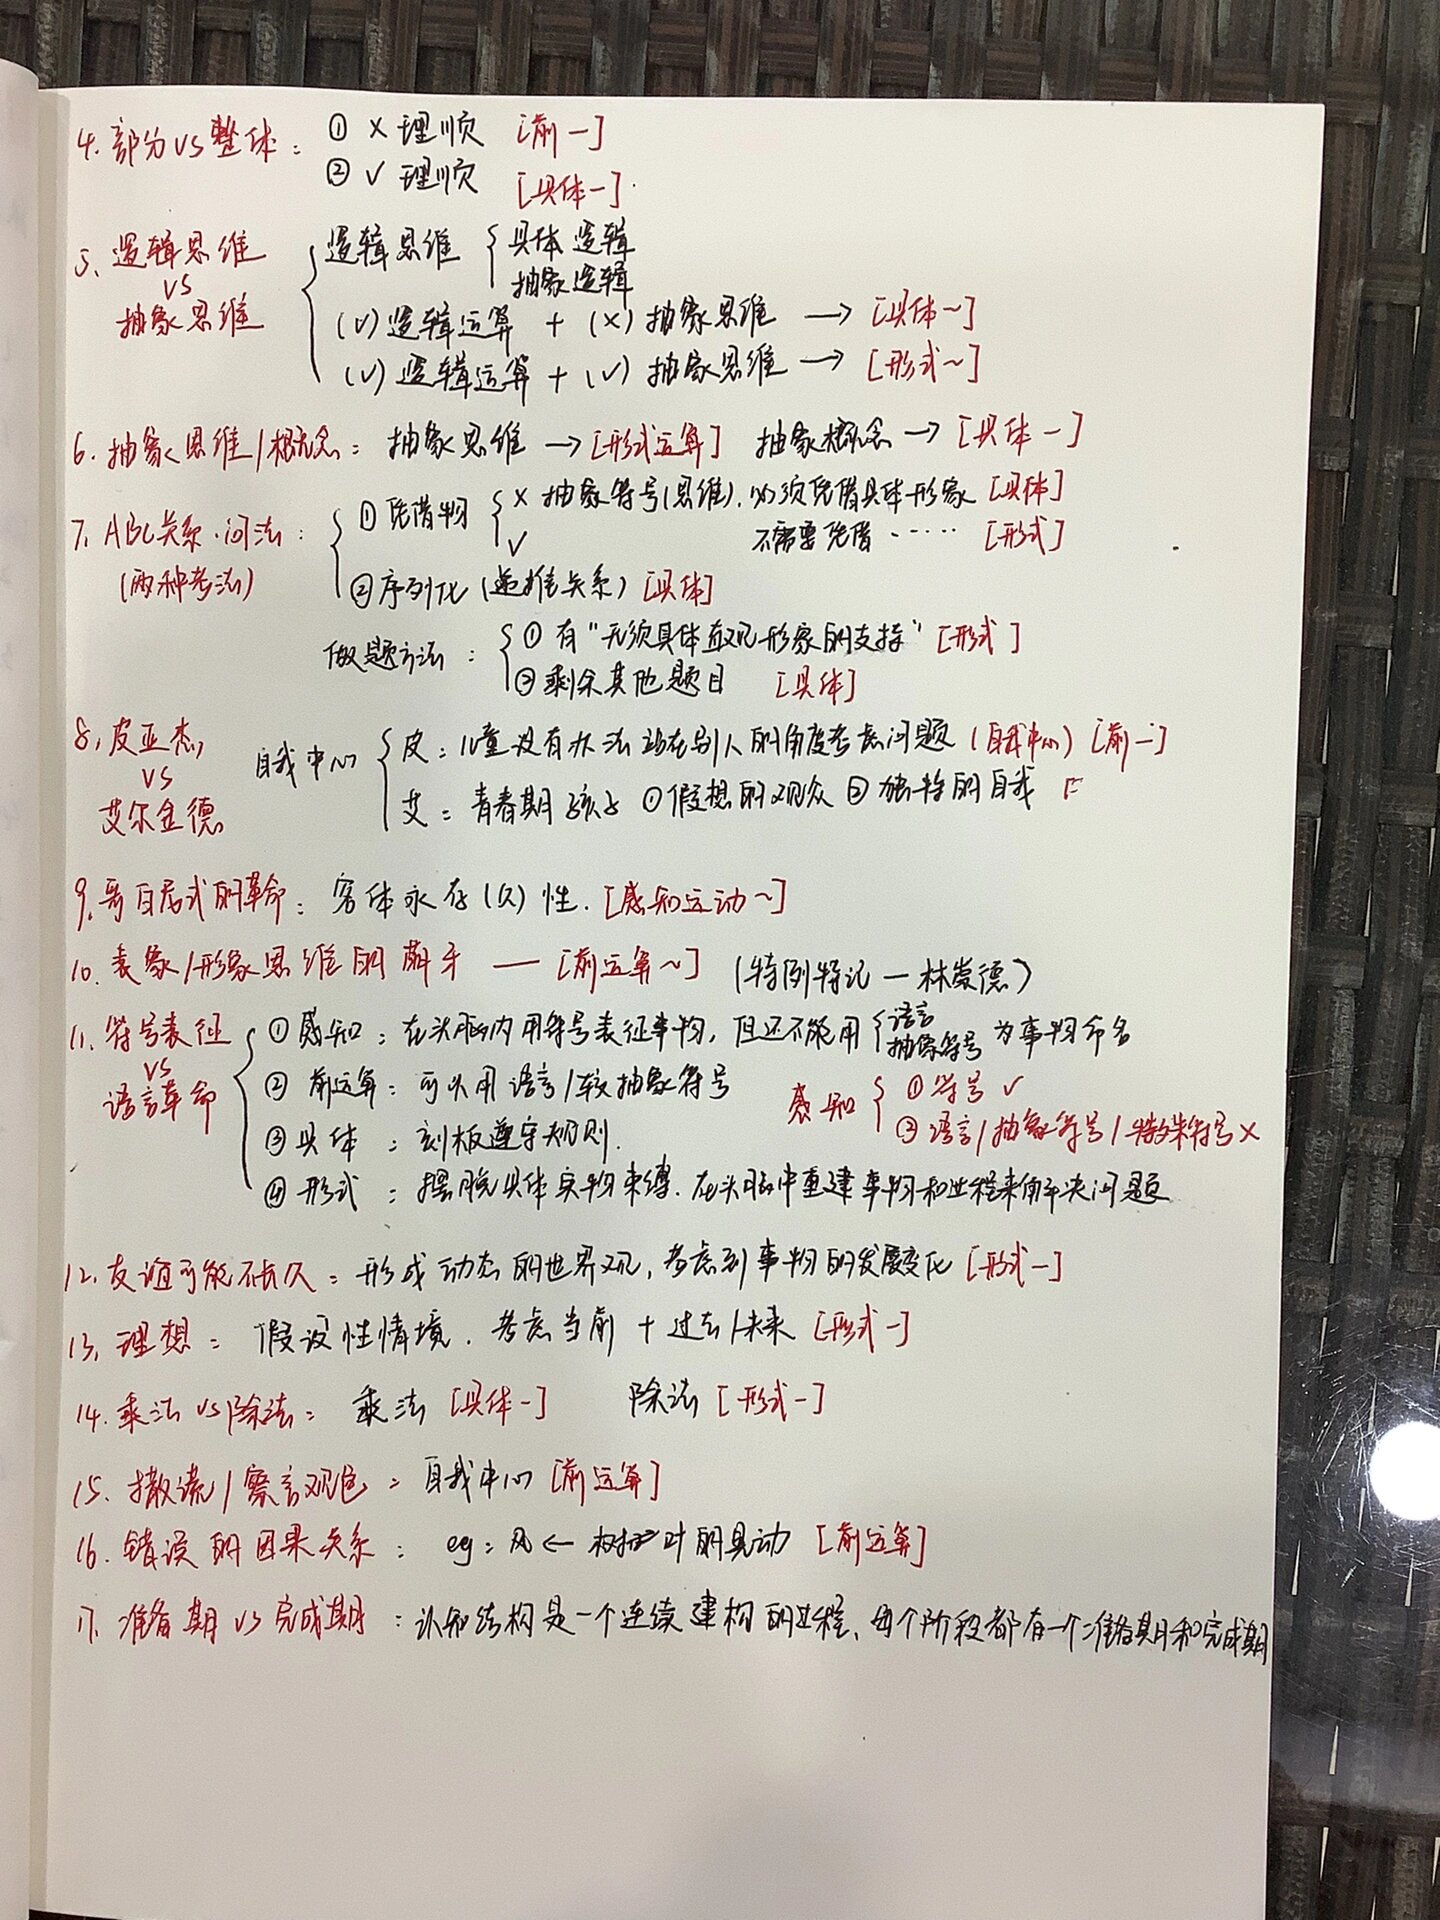 4. 部分vs整体： ① × 理顺 [前一]
② √ 理顺 [具体一]
5. 逻辑思维 vs 抽象思维 { 逻辑思维 { 具体逻辑
抽象逻辑
(√) 逻辑运算 + (×) 抽象思维 → [具体~]
(√) 逻辑运算 + (√) 抽象思维 → [形式~]
6. 抽象思维/概念： 抽象思维 → [形式运算] 抽象概念 → [具体一]
7. ABC关系·问法： { ① 凭借物 { × 抽象符号(思维), 必须凭借具体形象 [具体]
(两种考法) √ 不需要凭借······ [形式]
② 序列化 (递推关系) [具体]
做题方法： { ① 有“无须具体直观形象的支持” [形式]
② 剩余其他题目 [具体]
8. 皮亚杰, vs 艾尔金德 自我中心 { 皮： 儿童没有办法站在别人的角度考虑问题 (自我中心) [前一]
艾： 青春期孩子 ① 假想的观众 ② 独特的自我
9. 哥白尼式的革命： 客体永存(久)性. [感知运动~]
10. 表象/形象思维的萌芽 — [前运算~] (特例特记 — 林崇德)
11. 符号表征 vs 语言革命 { ① 感知： 在头脑内用符号表征事物, 但还不能用 { 语言
抽象符号 为事物命名
② 前运算： 可以用语言/较抽象符号 感知 { ① 符号 √
③ 具体： 刻板遵守规则. ② 语言/抽象符号/特殊符号 ×
④ 形式： 摆脱具体实物束缚. 在头脑中重建事物和过程来解决问题
12. 友谊可能不长久： 形成动态的世界观, 考虑到事物的发展变化 [形式一]
13. 理想： 假设性情境. 考虑当前 + 过去/未来 [形式一]
14. 乘法vs除法： 乘法 [具体一] 除法 [形式一]
15. 撒谎/察言观色： 自我中心 [前运算]
16. 错误的因果关系： eg: 风 ← 树叶的晃动 [前运算]
17. 准备期vs完成期： 认知结构是一个连续建构的过程, 每个阶段都有一个准备期和完成期